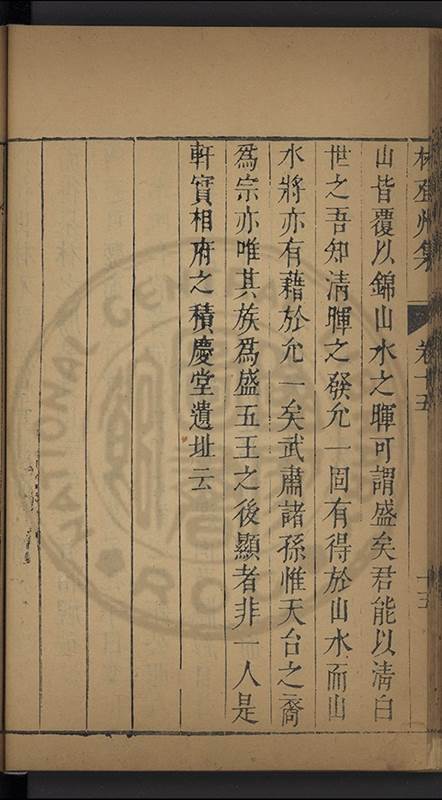 林登州集
卷十五
十五
山皆覆以錦山水之暉可謂盛矣君能以清白
世之吾知清暉之發允一固有得於山水而山
水將亦有藉於允一矣武肅諸孫惟天台之裔
爲宗亦唯其族爲盛五王之後顯者非一人是
軒實相府之積慶堂遺址云